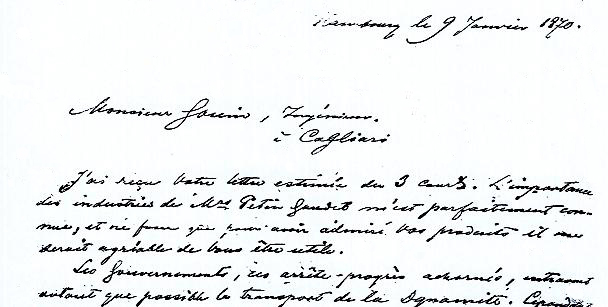 Hambourg le 9 Janvier 1870.
Monsieur Gouin, Ingénieur.
à Cagliari
J'ai reçu votre lettre estimée du 3 court. L'importance
des industries de Mrs Petin Gaudet m'est parfaitement con-
nue, et ce pour que j'avais admiré vos produits et me
serait agréable de vous être utile.
Les Gouvernements, ces arrête-progrès acharnés, entravent
autant que possible le transport de la Dynamite.